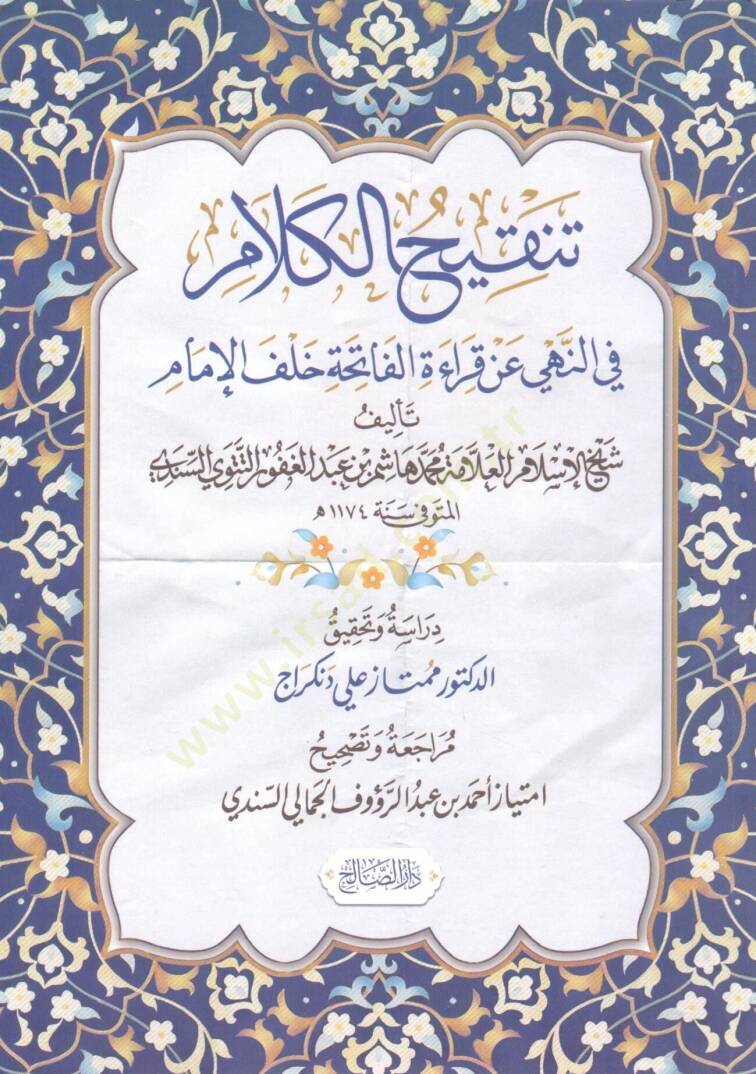 تنقيح الكلام
في النَّهْي عَنْ قِرَاءَةِ الفَاتِحَةِ خَلْفَ الإِمَامِ
تَأليفُ
شَيْخ الإِسْلَام العَلَّامَة مُحَمَّد هَاشِم بْن عَبْد الغَفُور التَّتَوِي السِّنْدِي
المتوفى سَنَة ١١٧٤ هـ
دِرَاسَةُ وَتَحْقِيقُ
الدكتور مُمتَاز علي دَنكراج
مُرَاجَعَةُ وَتَصْحِيحُ
امتياز أحمد بن عبدُ الرَّؤُوف الجمالي السّندي
دَارُ الصَّالِح